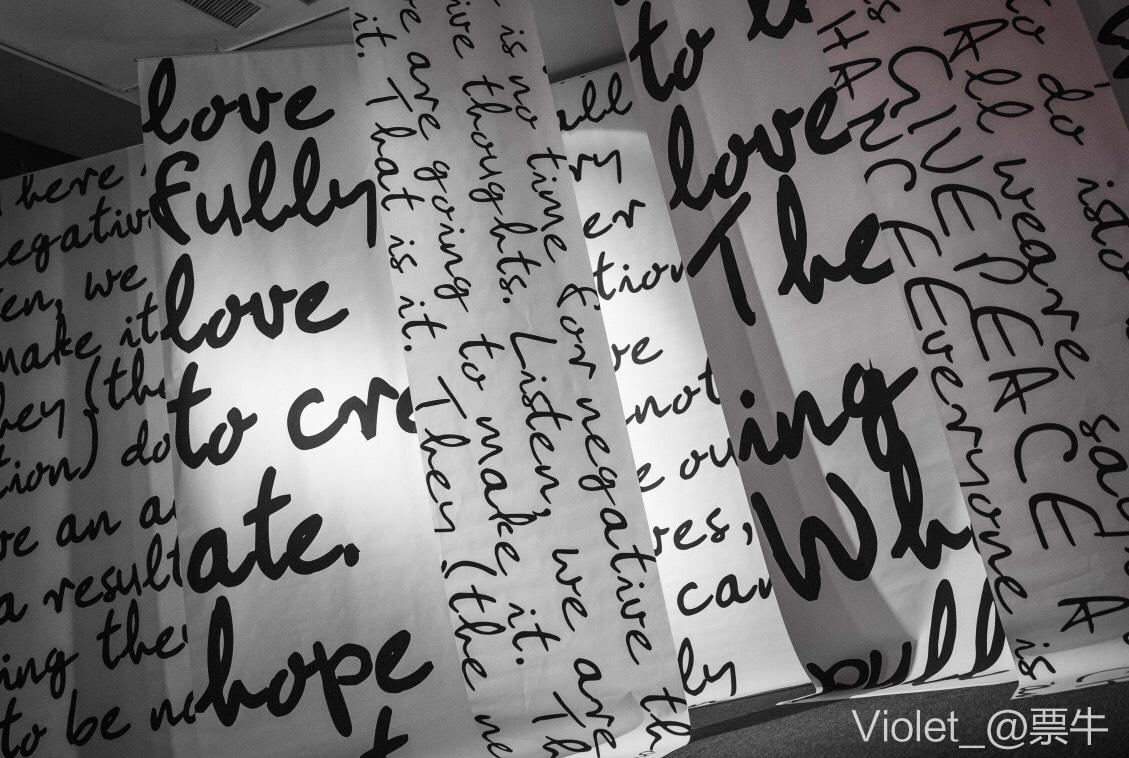 here
negativ
en, we
make it
hey (the
tion) do
ve an a
a result
ing the
to be no
love
fully
love
to cre
ate.
hope
t
it. That is it. They (the ne
e are going to make it. Th
ive thoughts. Listen, we are
is no time for negative th
all
ry
er
tion
ve
not
e ou
ves,
can
ly
to
love
The
ing
Wh
pull
is
HANCE Everyone is
GIVE PEACE A
All we are sa
to do isto
Violet_@票牛